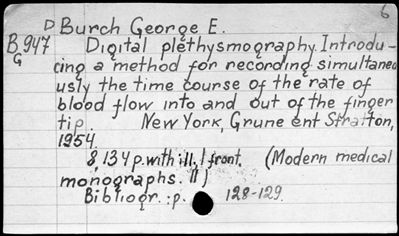 6
D Burch George E.
B 947 Digital plethysmography. Introdu-
G
cing a method for recording simultaneo
usly the time course of the rate of
blood flow into and out of the finger
tip. New York, Grune ent Stratton,
1954.
8, 134 p. with ill., 1 front. (Modern medical
monographs. 11)
Bibliogr.: p. 128-129.